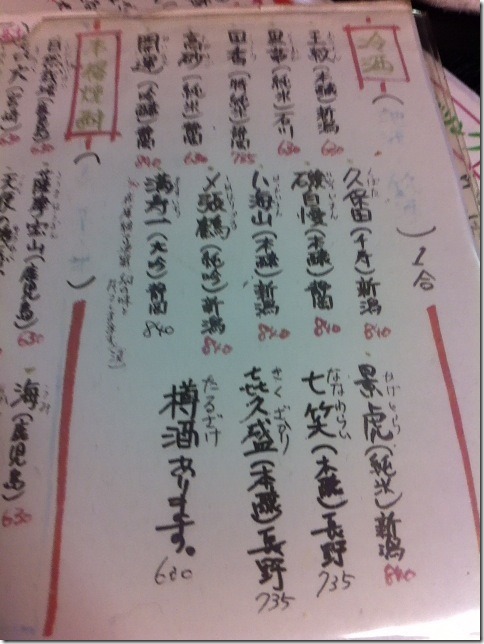 冷酒
1合
王紋(本醸)新潟 630
黒帯(純米)石川 630
田香(特純米)静岡 735
高砂(純米)静岡 630
開運(吟醸)静岡 840
久保田(千寿)新潟 840
磯自慢(本醸)静岡 840
八海山(本醸)新潟 840
〆張鶴(純吟)新潟 840
満寿一(大吟)静岡 840
景虎(純米)新潟 840
七笑(本醸)長野 735
㐂久盛(本醸)長野 735
樽酒あります。 630
本格焼酎
薩摩宝山(鹿児島) 630
海(鹿児島) 630